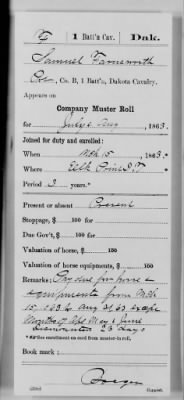 F | 1 Batt'n Cav. | Dak.
Samuel Farnsworth
Cor, Co. B, 1 Batt'n, Dakota Cavalry.
Appears on
Company Muster Roll
for July & Aug, 1863.
Joined for duty and enrolled:
When Mch 15, 1863.*
Where Elk Point D.T.
Period 3 years.*
Present or absent Present
Stoppage, $ 100 for
Due Gov't, $ 100 for
Valuation of horse, $ 100
Valuation of horse equipments, $ 100
Remarks: Pay due for horse &
equipments from Mch
15, 1863 to Aug 31 63 except
Months of Apl May & June
dismounted 23 days
*See enrollment on card from muster-in roll.
Book mark:
Copyist.